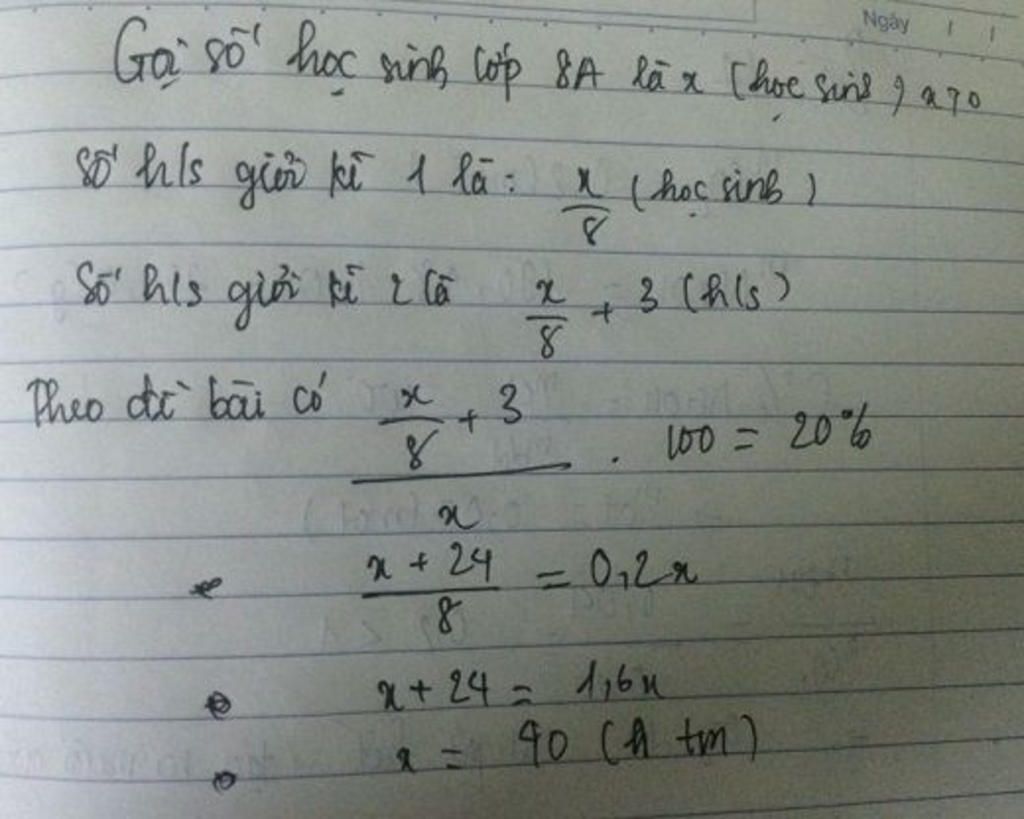 Ngày
Gọi số học sinh lớp 8A là x (học sinh, x > 0
Số h/s giỏi kì 1 là: x/8 (học sinh)
Số h/s giỏi kì 2 là x/8 + 3 (h/s)
Theo đề bài có (x/8 + 3)/x . 100 = 20%
(x + 24)/8 = 0,2x
x + 24 = 1,6x
x = 40 ( tm)